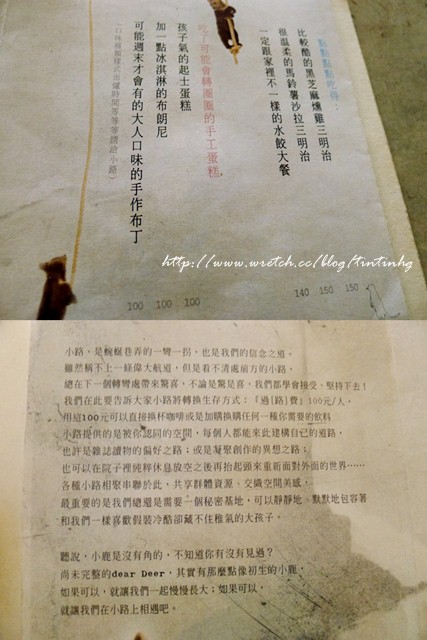 點點點點吃得：
比較酷的黑芝麻燻雞三明治
很溫柔的馬鈴薯沙拉三明治
一定跟家裡不一樣的水餃大餐
140 150 150
吃了可能會轉圈圈的手工蛋糕,
孩子氣的起士蛋糕
加一點冰淇淋的布朗尼
可能週末才會有的大人口味的手作布丁
100 100 100
http://www.wretch.cc/blog/tintinhg
小路，是蜿蜒巷弄的一彎一拐，也是我們的信念之道。
雖然稱不上一條偉大航道，但是看不清處前方的小路，
總在下一個轉彎處帶來驚喜，不論是驚是喜，我們都學會接受、堅持下去！
我們在此要告訴大家小路將轉換生存方式：『過(路)費』100元/人，
用這100元可以直接換杯咖啡或是加購換購任何一種你需要的飲料
小路提供的是被你認同的空間，每個人都能來此建構自己的道路，
也許是雜誌讀物的偏好之路；或是凝聚創作的異想之路；
也可以在院子裡純粹休息放空之後再抬起頭來重新面對外面的世界……
各種小路相聚串聯於此，共享群體資源、交織空間美感，
最重要的是我們總還是需要一個秘密基地，可以靜靜地、默默地包容著
和我們一樣喜歡假裝冷酷卻藏不住稚氣的大孩子。
聽說，小鹿是沒有角的，不知道你有沒有見過？
尚未完整的dear Deer，其實有那麼點像初生的小鹿，
如果可以，就讓我們一起慢慢長大；如果可以，
就讓我們在小路上相遇吧。